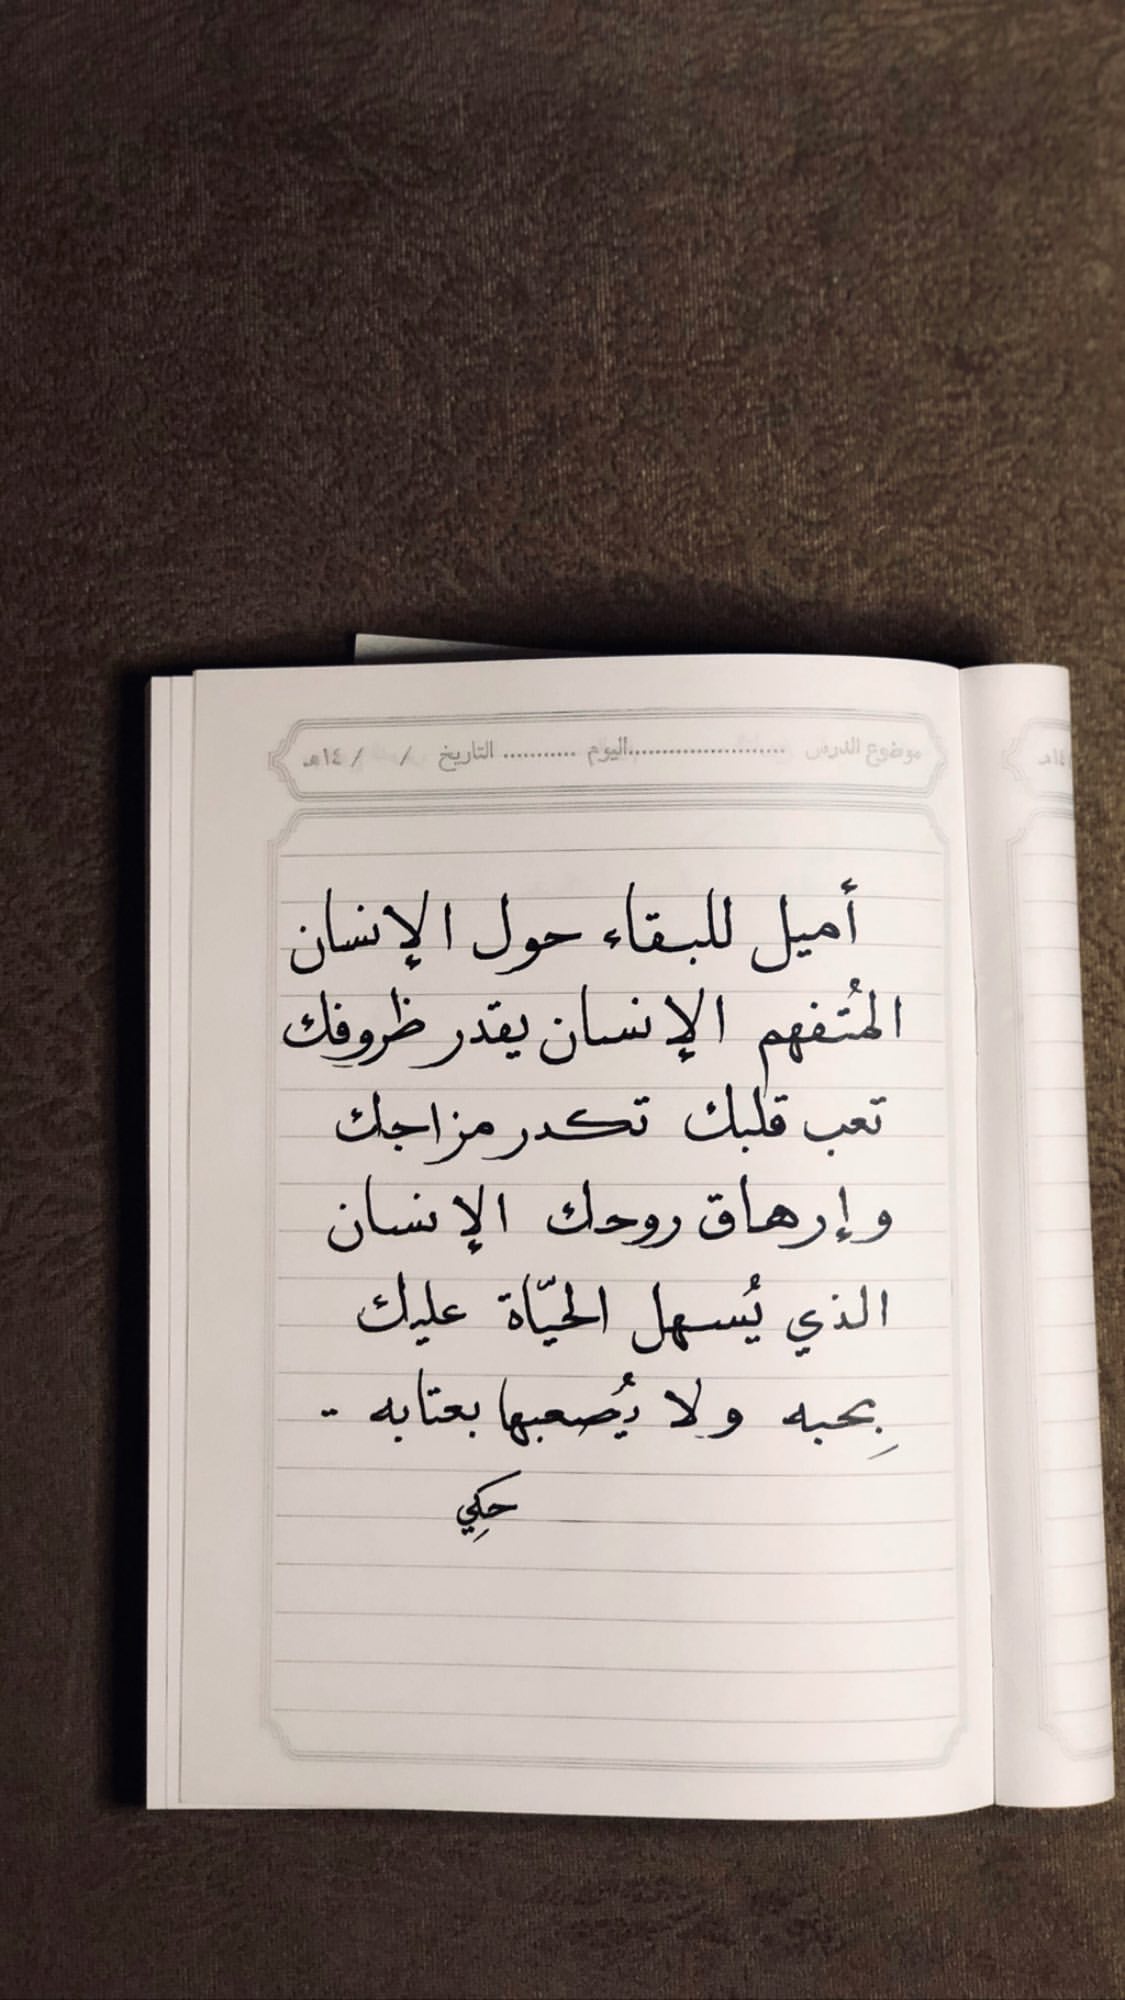 موضوع الدرس ........................ اليوم ........... التاريخ / / ١٤هـ
أميل للبقاء حول الإنسان
المُتفهم الإنسان يقدر ظروفك
تعب قلبك تكدر مزاجك
وإرهاق روحك الإنسان
الذي يُسهل الحيّاة عليك
بِحبه ولا يُصعبها بعتابه ..
حكِي